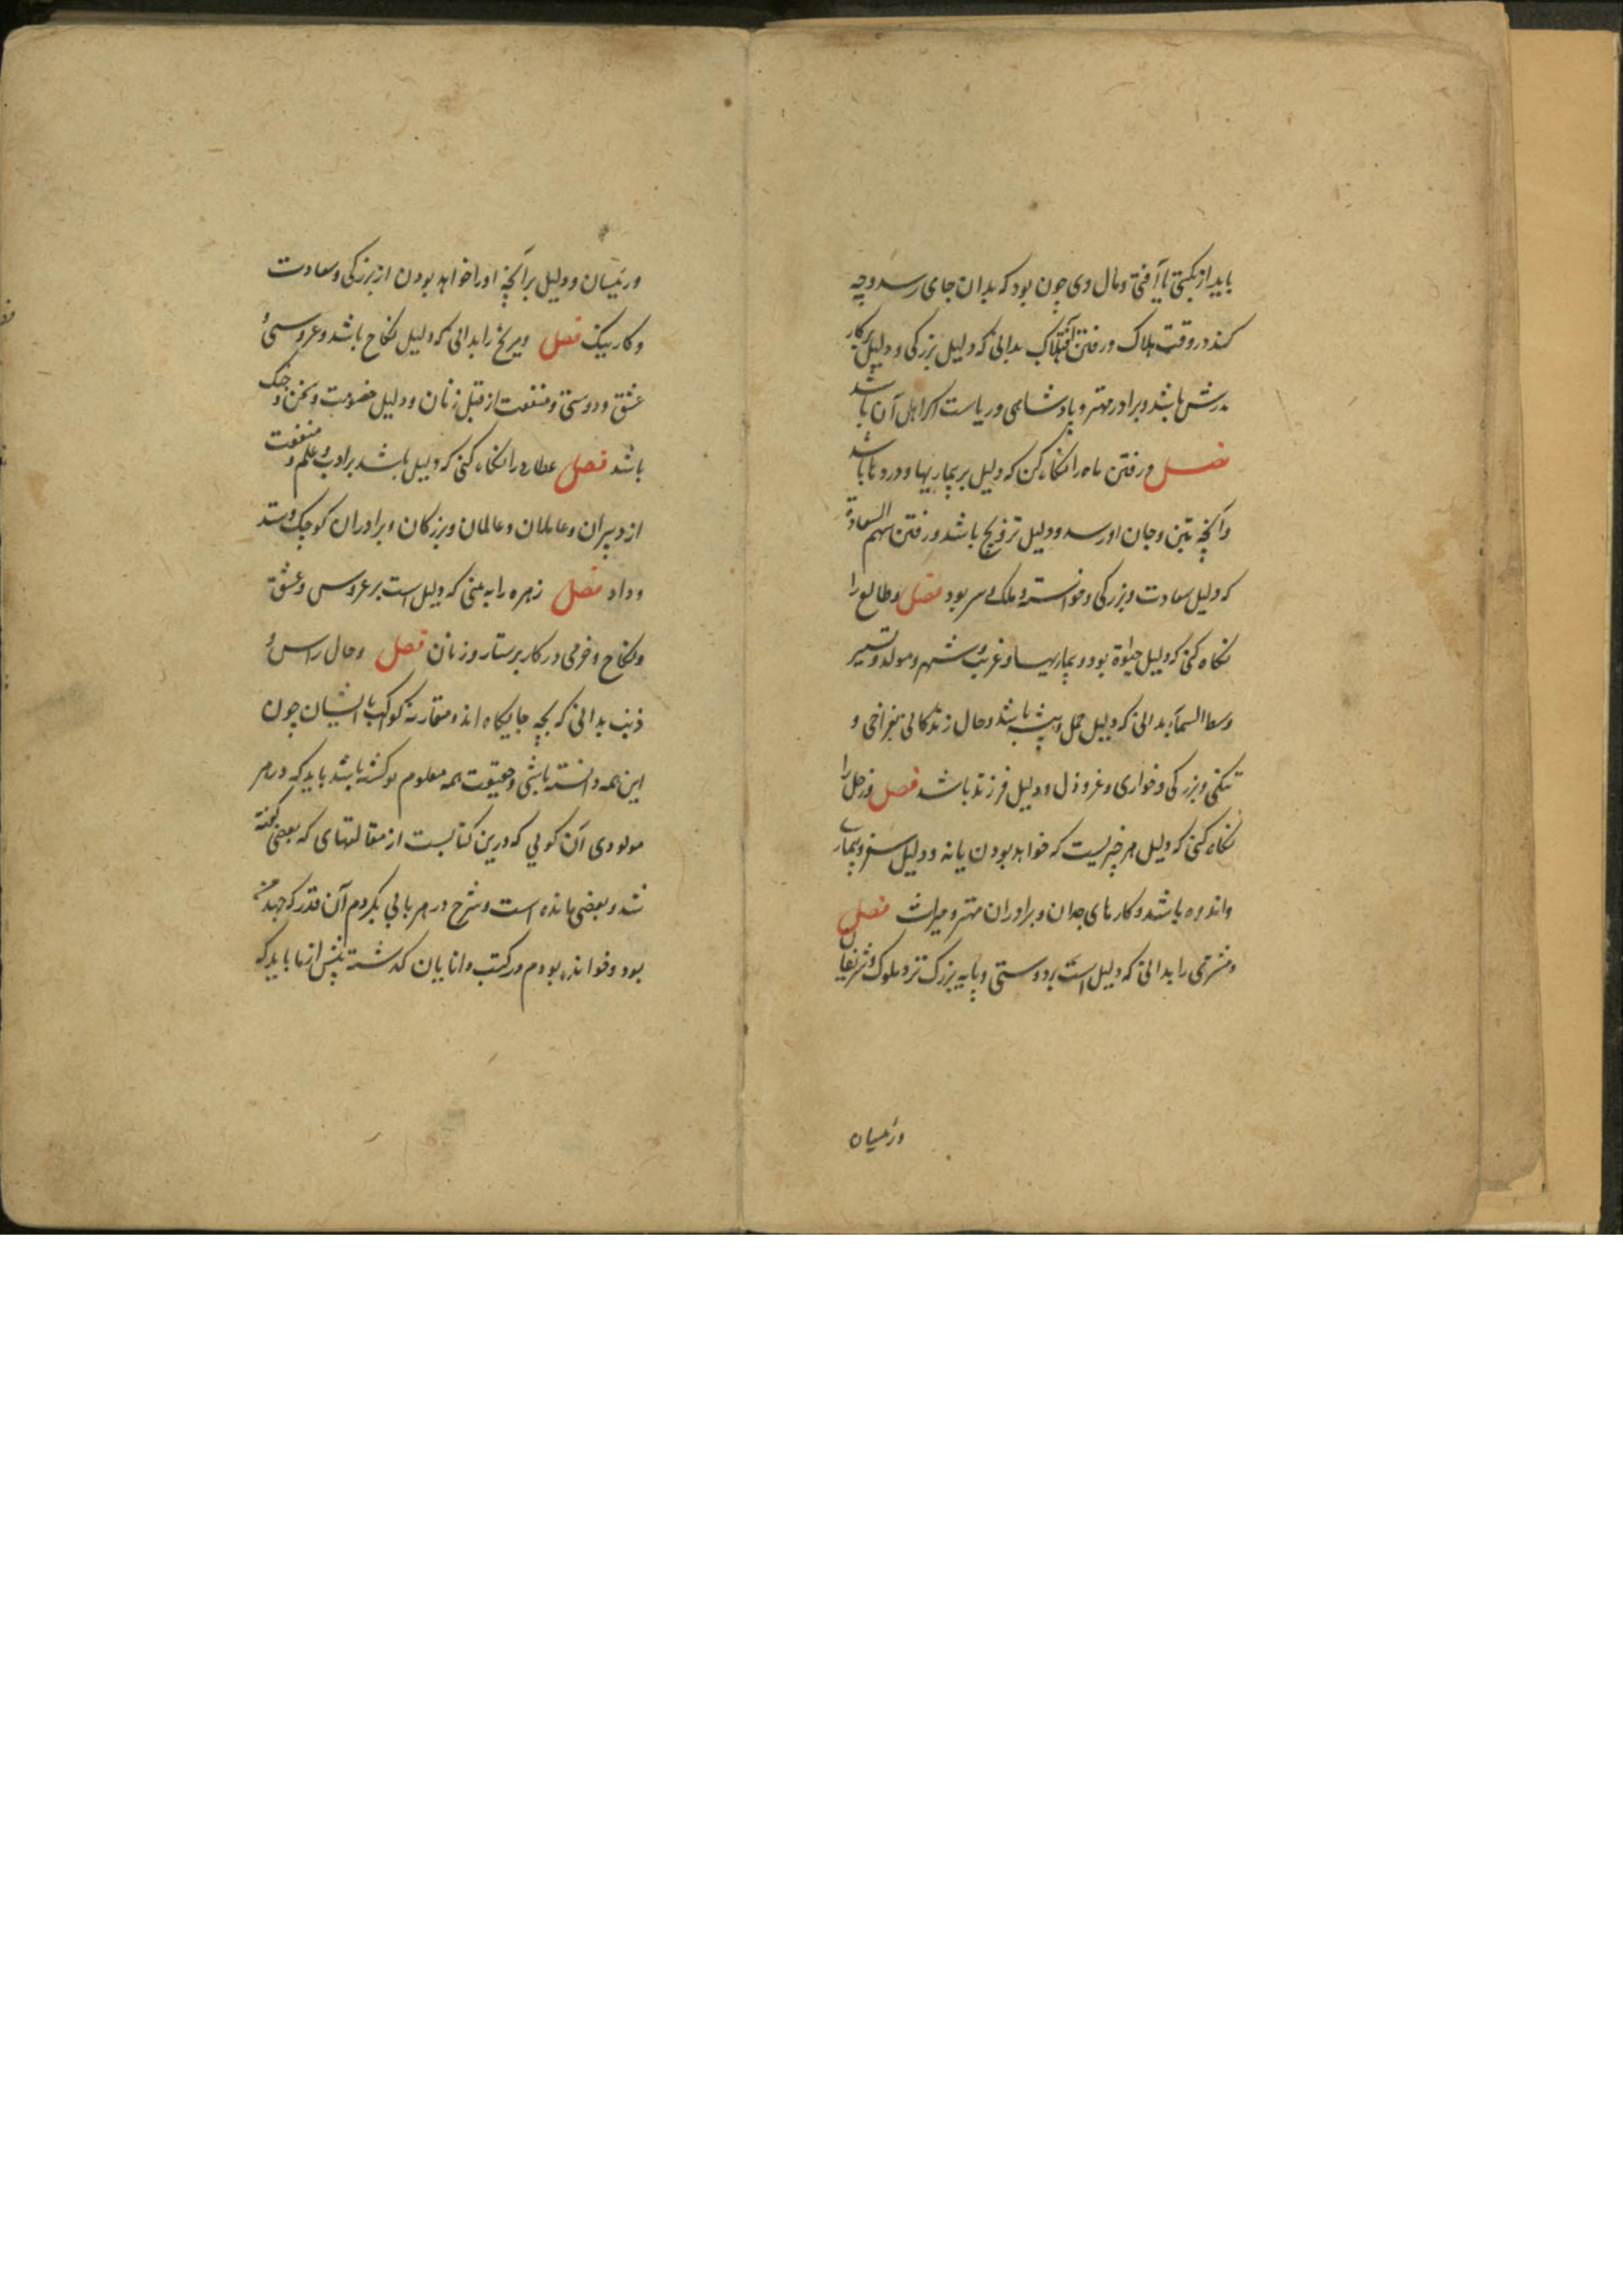 باید از نکبتی یا آفتی و مال وی چون بود که بدان جای رسد و چه
کند در وقت هلاک و رفتن آفتاب بدانی که دلیل بزرکی و دلیل بر کار
پدرش باشد و برادر مهتر و پادشاهی و ریاست اکر اهل آن باشد
فصل و رفتن ماه را نکاه کن که دلیل بر بیماریها و دردها باشد
و آنچه بتن و جان او رسد و دلیل تزویج باشد و رفتن سهم السعادة
که دلیل سعادت و بزرکی و خواسته و ملک بود فصل و طالع را
نکاه کنی که دلیل حیوة بود و بیماریها و غربت و شهر و مولد و تسییر
وسط السماء بدانی که دلیل عمل و پیشه باشد و حال زندکانی بفراخی و
تنکی و بزرکی و خواری و عز و ذل و دلیل فرزند باشد فصل و زحل را
نکاه کنی که دلیل هر چیزیست که خواهد بودن یا نه و دلیل سفر و بیماری
و اندوه باشد و کارهای جدان و برادران مهتر و میراث فصل
و مشتری را بدانی که دلیل است بر دوستی و پایه بزرک نزد ملوک و شریفان
ورئیسان
ورئیسان و دلیل بر آنچه او را خواهد بودن از بزرکی و سعادت
و کار نیک فصل و مریخ را بدانی که دلیل نکاح باشد و عروسی و
عشق و دوستی و منفعت از قبل زنان و دلیل خصومت و سخن و جنک
باشد فصل عطارد را نکاه کنی که دلیل باشد بر ادب و علم و منفعت
از دبیران و عاملان و عالمان و بزرکان و برادران کوچک و ستد
و داد فصل زهره را به بینی که دلیل است بر عروس و عشق
و نکاح و خرمی در کار پرستار و زنان فصل و حال راس و
ذنب بدانی که بچه جایکاه اند و مقارنه کواکب با ایشان چون
این همه دانسته باشی و حقیقت همه معلوم تو کشته باشد باید که در هر
مولودی آن کویی که درین کتابست از مقالتهای که بعضی کفته
شد و بعضی مانده است و شرح در هر بابی بکردم آن قدر که جهد من
بود و خوانده بودم در کتب دانایان کذشته پیش از ما باید که